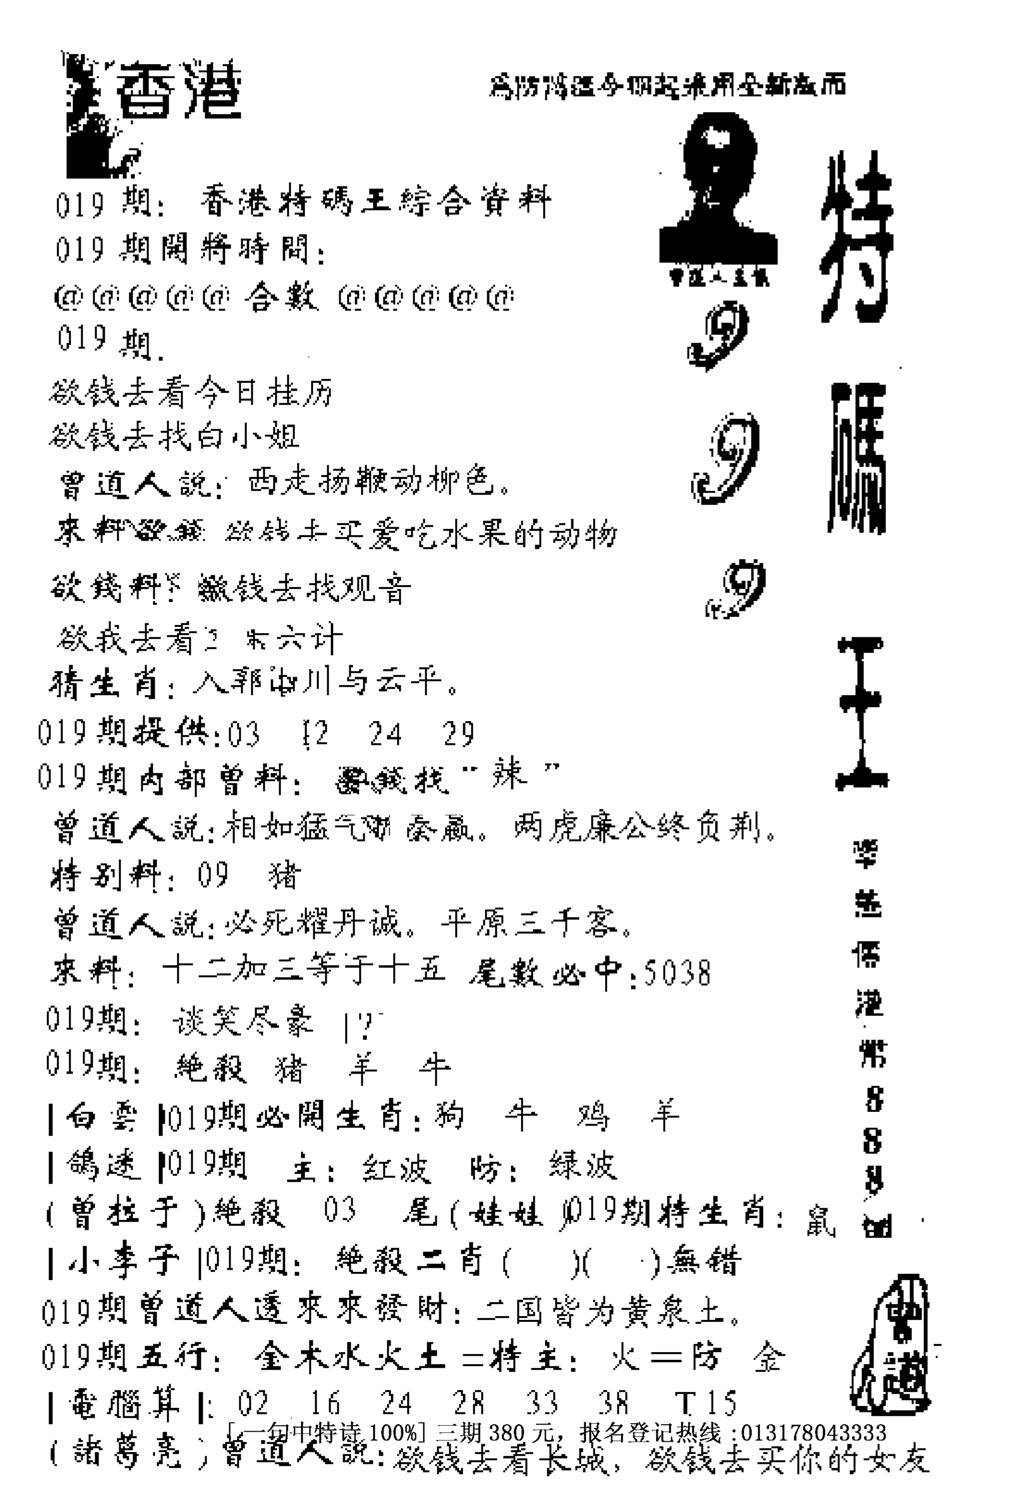 香港
019期：香港特碼王綜合資料
019期開將時間：
@@@@@合數@@@@@
019期.
欲钱去看今日挂历
欲钱去找白小姐
曾道人説：西走扬鞭动柳色。
來料 欲錢 欲钱去买爱吃水果的动物
欲錢料： 钱去找观音
欲我去看 六计
猜生肖：入郭 川与云平。
019期提供:03 12 24 29
019期内部曾料： 錢找“辣”
曾道人説:相如猛气 秦嬴。两虎廉公终负荆。
特别料：09 猪
曾道人説:必死耀丹诚。平原三千客。
來料：十二加三等于十五 尾數必中:5038
019期：谈笑尽豪 |?
019期：絶殺 猪 羊 牛
|白雲|019期必開生肖:狗 牛 鸡 羊
|鴿迷|019期 主：红波 防：绿波
(曾拉于)絶殺 03 尾(娃娃)019期特生肖：鼠
|小李子|019期：絶殺二肖( )( )無錯
019期曾道人透來來發財:二国皆为黄泉土。
019期五行：金木水火土=特主：火=防 金
|電腦算|: 02 16 24 28 33 38 T15
[一句中特诗100%]三期380元，报名登记热线:013178043333
(諸葛亮)曾道人説:欲钱去看长城，欲钱去买你的女友
為防 今期起采用全新版面
曾道人主
9
9
9
特
碼
王
港
幣
8
8
8
曾道